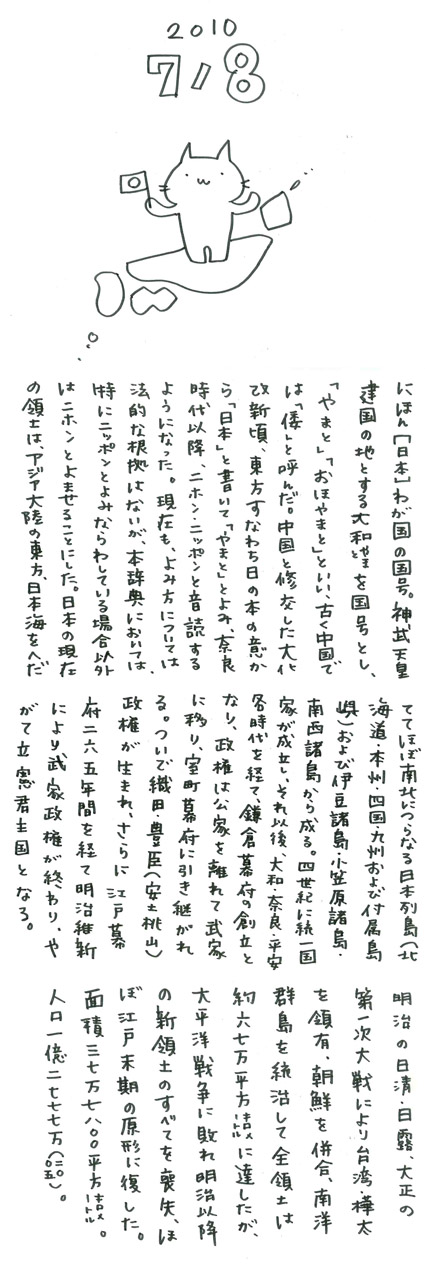 2010
7/8
にほん[日本]わが国の国号。神武天皇
建国の地とする大和やまとを国号とし、
「やまと」「おほやまと」といい、古く中国で
は「倭」と呼んだ。中国と修交した大化
改新頃、東方すなわち日の本の意か
ら「日本」と書いて「やまと」とよみ、奈良
時代以降、ニホン・ニッポンと音読する
ようになった。現在も、よみ方については
法的な根拠はないが、本辞典においては、
特にニッポンとよみならわしている場合以外
はニホンとよませることにした。日本の現在
の領土は、アジア大陸の東方、日本海をへだ
ててほぼ南北につらなる日本列島(北
海道・本州・四国九州および付属島
嶼)および伊豆諸島・小笠原諸島・
南西諸島から成る。四世紀に統一国
家が成立し、それ以後、大和・奈良・平安
各時代を経て、鎌倉幕府の創立と
なり、政権は公家を離れて武家
に移り、室町幕府に引き継がれ
る。ついで織田・豊臣(安土桃山)
政権が生まれ、さらに江戸幕
府二六五年間を経て明治維新
により武家政権が終わり、や
がて立憲君主国となる。
明治の日清・日露、大正の
第一次大戦により台湾・樺太
を領有、朝鮮を併合、南洋
群島を統治して全領土は
約六七万平方キロメートルに達したが、
太平洋戦争に敗れ明治以降
の新領土のすべてを喪失、ほ
ぼ江戸末期の原形に復した。
面積三七万七八〇〇平方キロメートル。
人口一億二七七七万(二〇〇五)。